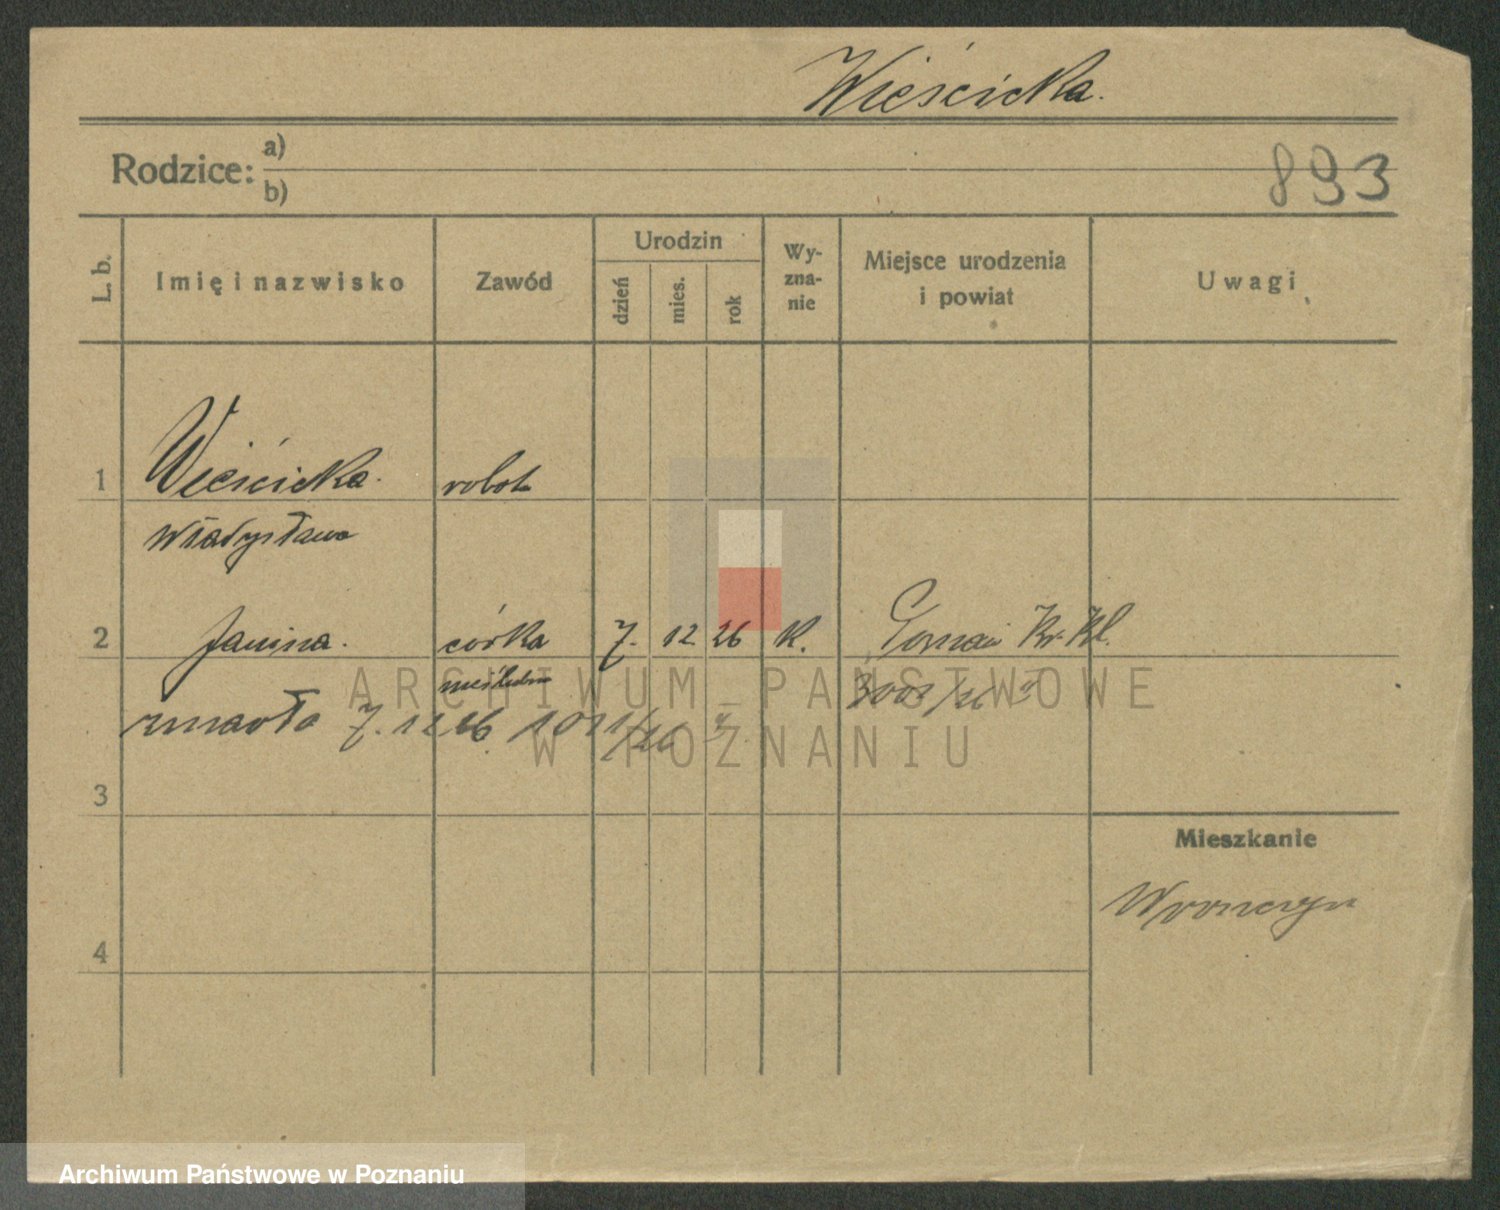 Wieścicka.
Rodzice: a)
b)
893
L. b.
Imię i nazwisko
Zawód
Urodzin
dzień
mies.
rok
Wy-
zna-
nie
Miejsce urodzenia
i powiat
Uwagi
1 Wieścicka. robot
Władysława
2 Janina. córka 7. 12 26 K.
nieślubna
zmarła 7. 12 26
3
Mieszkanie
Wronczyn
4
ARCHIWUM PAŃSTWOWE
W POZNANIU
Archiwum Państwowe w Poznaniu